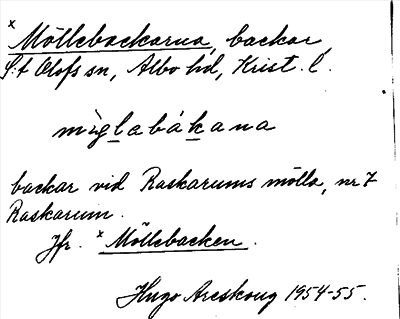 × Möllebackarna, backar
S:t Olofs sn, Albo hd, Krist. l.
backar vid Raskarums mölla, nr 7
Raskarum.
Jfr. × Möllebacken.
Hugo Areskoug 1954-55.